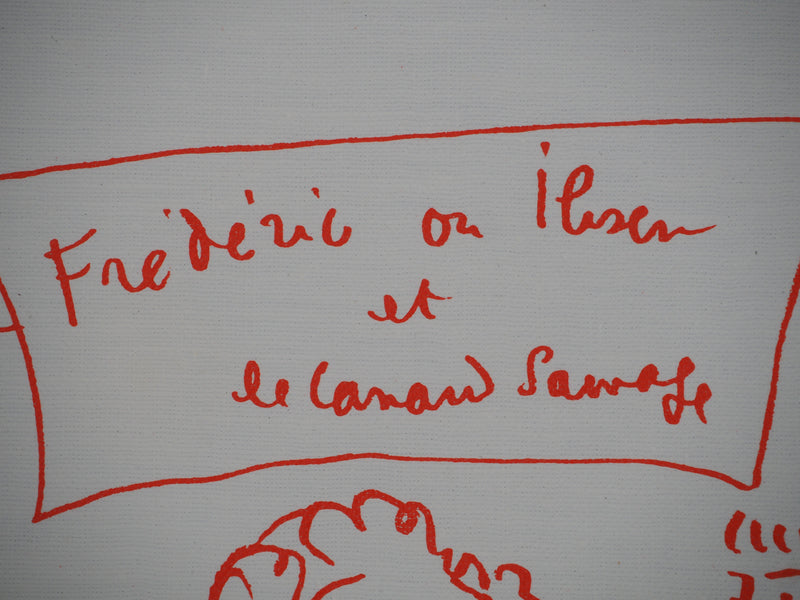 Frédéric ou Ibsen
et
le Canard Sauvage